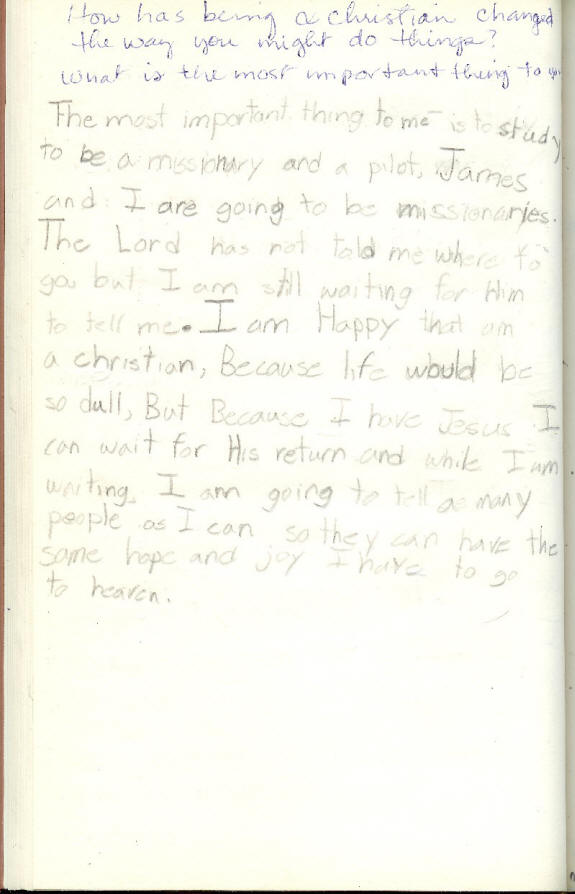 How has being a Christian changed
the way you might do things?
What is the most important thing to you
The most important thing to me is to study
to be a missionary and a pilot, James
and I are going to be missionaries.
The Lord has not told me where to
go but I am still waiting for Him
to tell me. I am Happy that am
a christian, Because life would be
so dull, But Because I have Jesus I
can wait for His return and while I am
waiting, I am going to tell as many
people as I can so they can have the
same hope and joy I have to go
to heaven.